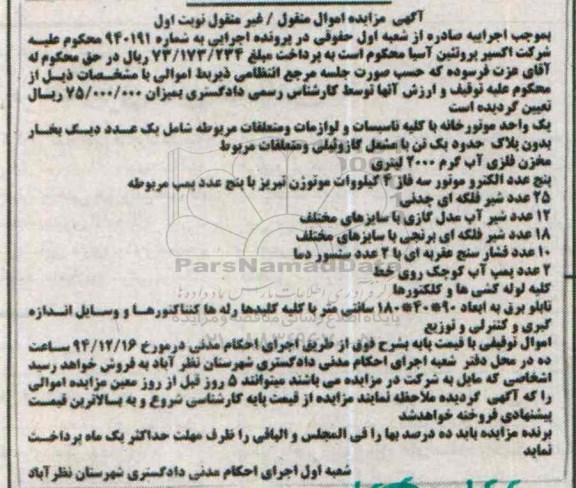 آگهی مزایده اموال منقول / غیر منقول نوبت اول
بموجب اجراییه صادره از شعبه اول حقوقی در پرونده اجرایی به شماره ۹۴۰۱۹۱ محکوم علیه
شرکت اکسیر پروتئین آسیا محکوم است به پرداخت مبلغ ۷۳/۱۷۳/۲۳۴ ریال در حق محکوم له
آقای عزت فرسوده که حسب صورت جلسه مرجع انتظامی ذیربط اموالی با مشخصات ذیل از
محکوم علیه توقیف و ارزش آنها توسط کارشناس رسمی دادگستری بمیزان ۷۵/۰۰۰/۰۰۰ ریال
تعیین گردیده است
یک واحد موتورخانه با کلیه تاسیسات و لوازمات ومتعلقات مربوطه شامل یک عدد دیگ بخار
بدون پلاک حدود یک تن با مشعل گازوئیلی ومتعلقات مربوط
مخزن فلزی آب گرم ۲۰۰۰ لیتری
پنج عدد الکترو موتور سه فاز ۴ کیلووات موتوژن تبریز با پنج عدد پمپ مربوطه
۲۵ عدد شیر فلکه ای چدنی
۱۲ عدد شیر آب مدل گازی با سایزهای مختلف
۱۸ عدد شیر فلکه ای برنجی با سایزهای مختلف
۱۰ عدد فشار سنج عقربه ای با ۲ عدد سنسور دما
۲ عدد پمپ آب کوچک روی خط
ParsNamadData
کلیه لوله کشی ها و کلکتورها
تابلو برق به ابعاد ۹۰*۴۰*۱۸۰ سانتی متر با کلیه کلیدها رله ها کنتاکتورها و وسایل اندازه
گیری و کنترلی و توزیع
اموال توقیفی با قیمت پایه بشرح فوق از طریق اجرای احکام مدنی درمورخ ۹۴/۱۲/۱۶ ساعت
ده در محل دفتر شعبه اجرای احکام مدنی دادگستری شهرستان نظر آباد به فروش خواهد رسید
اشخاصی که مایل به شرکت در مزایده می باشند میتوانند ۵ روز قبل از روز معین مزایده اموالی
را که آگهی گردیده ملاحظه نمایند مزایده از قیمت پایه کارشناسی شروع و به بالاترین قیمت
پیشنهادی فروخته خواهدشد
برنده مزایده باید ده درصد بها را فی المجلس و الباقی را ظرف مهلت حداکثر یک ماه پرداخت
نماید
شعبه اول اجرای احکام مدنی دادگستری شهرستان نظر آباد